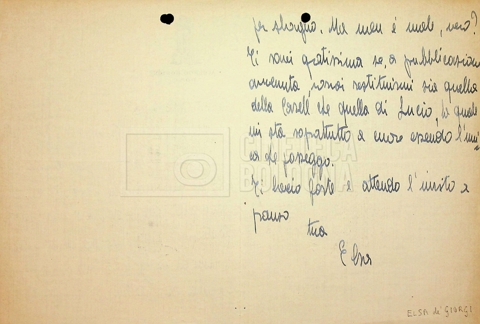 per sbaglio. Ma non è male, vero?
Ti sarei gratissima se, a pubblicazione
avvenuta, vorrai restituirmi sia quella
della Caselli che quella di Lucio, la quale
mi sta soprattutto a cuore essendo l'uni
ca che posseggo.
Ti bacio forte e attendo l'invito a
pranzo
tua
Elsa
CINETECA
BOLOGNA
ELSA de' GIORGI